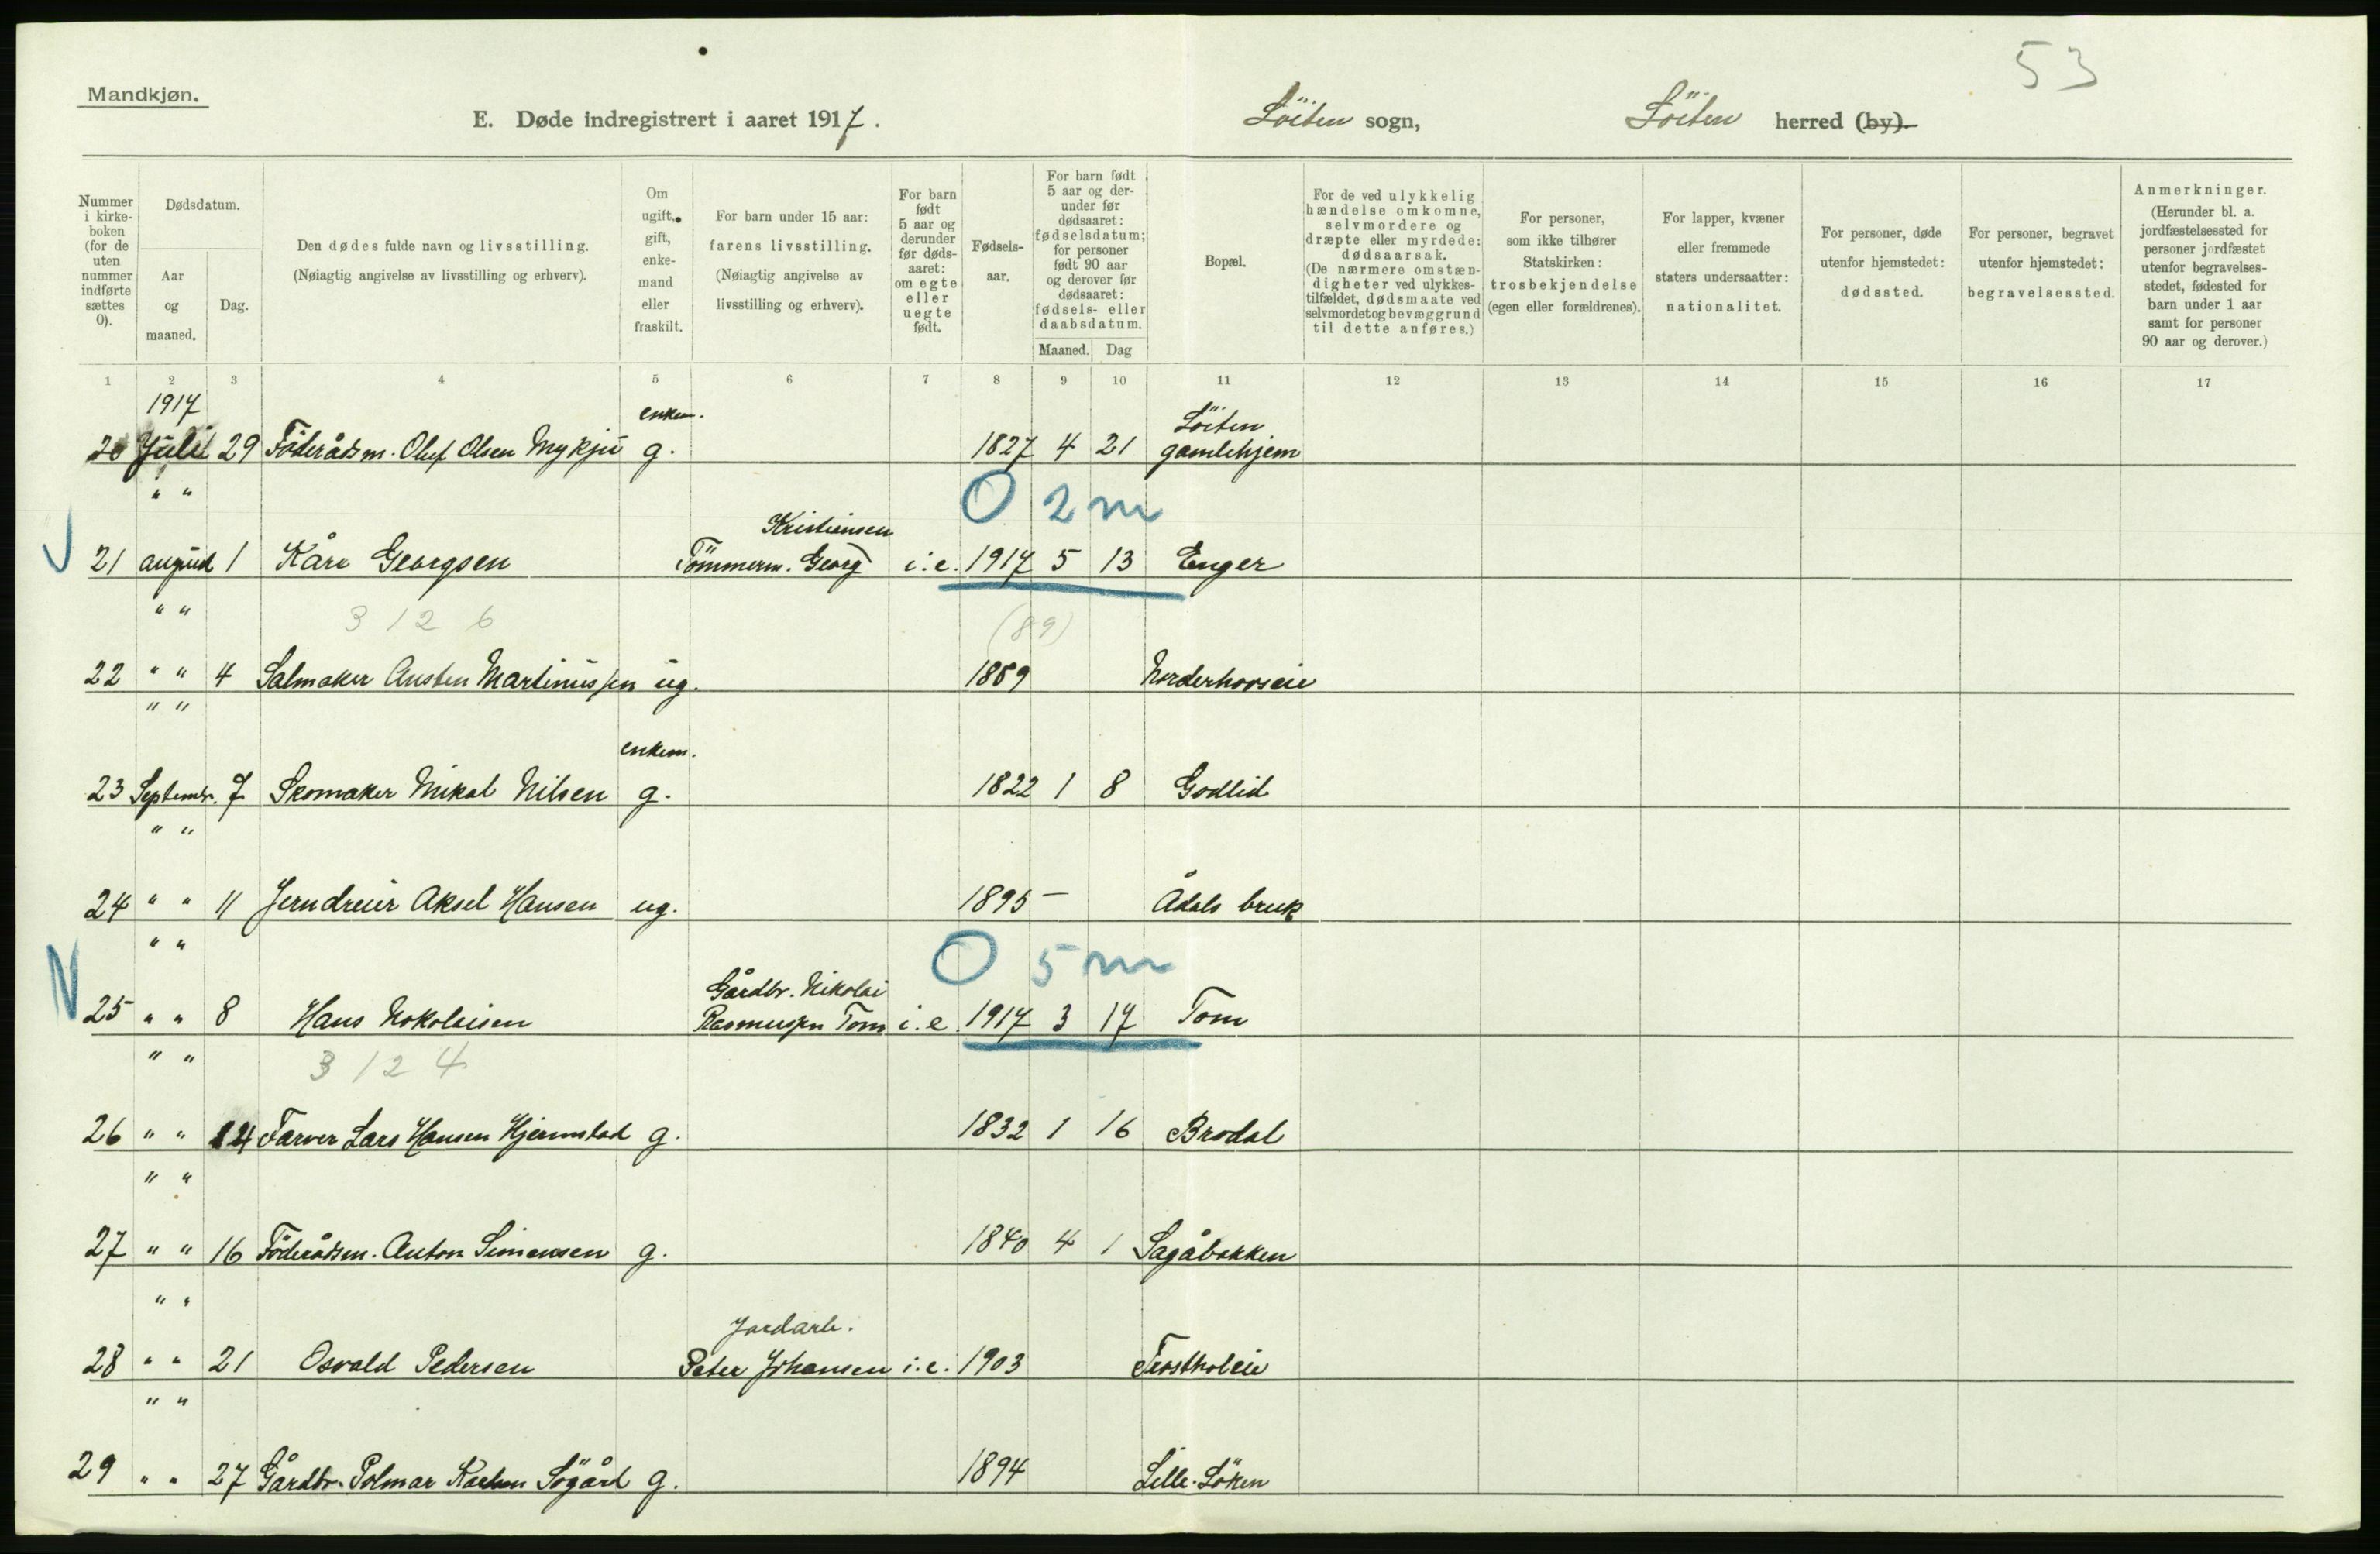 53
Mandkjøn.
E. Døde indregistrert i aaret 1917.
Löiten sogn,
Löiten herred (by).
Nummer i kirke-boken (for de uten nummer indførte sættes 0).
Dødsdatum.
Aar og maaned.
Dag.
Den dødes fulde navn og livsstilling.
(Nøiagtig angivelse av livsstilling og erhverv).
Om ugift, gift, enke-mand eller fraskilt.
For barn under 15 aar: farens livsstilling.
(Nøiagtig angivelse av livsstilling og erhverv).
For barn født 5 aar og derunder før døds-aaret: om egte eller uegte født.
Fødsels-aar.
For barn født 5 aar og der-under før dødsaaret: fødselsdatum; for personer født 90 aar og derover før dødsaaret: fødsels- eller daabsdatum.
Maaned. Dag
Bopæl.
For de ved ulykkelig hændelse omkomne, selvmordere og dræpte eller myrdede: dødsaarsak. (De nærmere omstæn-digheter ved ulykkes-tilfældet, dødsmaate ved selvmordet og bevæggrund til dette anføres.)
For personer, som ikke tilhører Statskirken: trosbekjendelse (egen eller forældrenes).
For lapper, kvæner eller fremmede staters undersaatter: nationalitet.
For personer, døde utenfor hjemstedet: dødssted.
For personer, begravet utenfor hjemstedet: begravelsessted.
Anmerkninger. (Herunder bl. a. jordfæstelsessted for personer jordfæstet utenfor begravelses-stedet, fødested for barn under 1 aar samt for personer 90 aar og derover.)
1 2 3 4 5 6 7 8 9 10 11 12 13 14 15 16 17
1917
enkem. Löiten
20 Juli 29 Föderådsm. Oluf Olsen Mykju g. 1827 4 21 gamlehjem
" "
0 2 m
Kristiansen
21 august 1 Kåre Georgsen Tömmerm. Georg i.e. 1917 5 13 Enger
" "
3 12 6 (89)
22 " " 4 Salmaker Austen Martinussen ug. 1889 Norderhovseie
" "
enkem.
23 Septembr. 7 Skomaker Mikal Nilsen g. 1822 1 8 Godlid
" "
24 " " 11 Jerndreier Aksel Hansen ug. 1895 – Ådals bruk
" "
0 5 m
N
Gårdbr. Nikolai
25 " " 8 Hans Nokolaisen Rasmussen Tom i.e 1917 3 17 Tom
" "
3 12 4
26 " " 14 Farver Lars Hansen Hjermstad g. 1832 1 16 Brodal
" "
27 " " 16 Föderådsm. Anton Simensen g. 1840 4 1 Sagåbakken
" "
Jordarb.
28 " " 21 Osvald Pedersen Peter Johansen i.e. 1903 Trostholeie
" "
29 " " 27 Gårdbr. Polmar Karlsen Sögård g. 1894 Lille-Löken